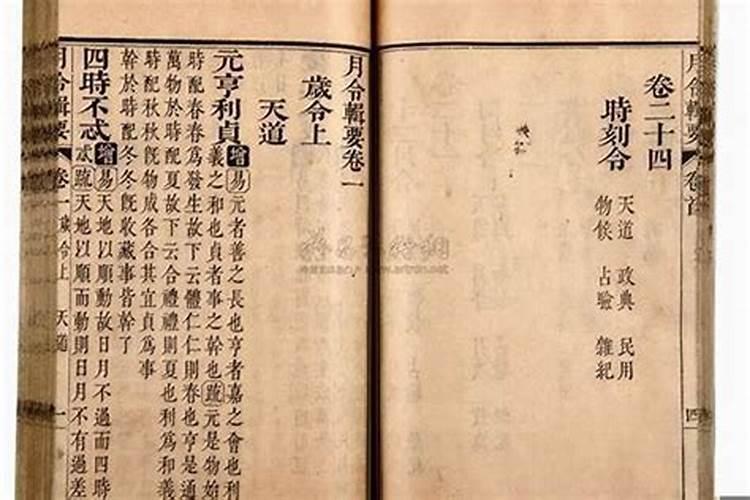 月令輯要 卷首 四
卷二十四
時刻令
天道 政典 民用
物候 占驗 雜紀
月令輯要卷一
歲令上
天道
元亨利貞 增 易 元者善之長也亨者嘉之會也利
義之和也貞者事之幹也 疏 元是物始
時配春春爲發生故下云體仁仁則春也亨是通
萬物於時配夏故下云合禮禮則夏也利爲和義
時配秋秋旣物成各合其宜貞爲事
幹於時配冬冬旣收藏事皆幹了
四時不忒 增 易 天地以順動故日月不過而四時
忒 疏 天地以順而動則日月不有過差
月令輯要 卷一 歲令上 天道 一